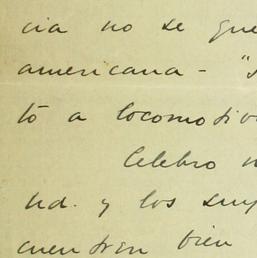 cia no se que
americana -
tó a locomotiv
Celebro
Ud. y los suy
cuentren bien